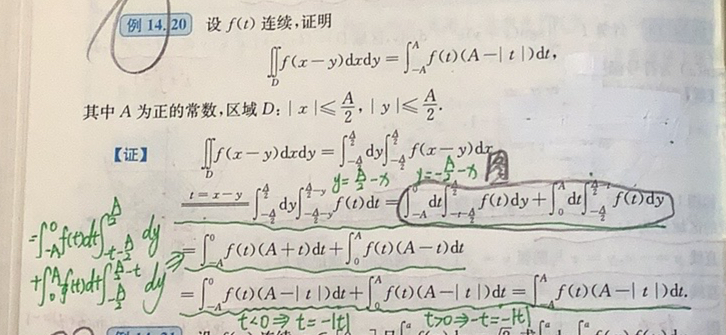 例 14.20 设 f(t) 连续,证明
∬_D f(x-y)dxdy = ∫_{-A}^{A} f(t)(A-|t|)dt,
其中 A 为正的常数,区域 D: |x|≤A/2, |y|≤A/2.
【证】 ∬_D f(x-y)dxdy = ∫_{-A/2}^{A/2} dy∫_{-A/2}^{A/2} f(x-y)dx
y=A/2-x y=-A/2-x 图
t=x-y ∫_{-A/2}^{A/2} dy∫_{-A/2-y}^{A/2-y} f(t)dt = ∫_{-A}^{0} dt∫_{-t-A/2}^{A/2} f(t)dy + ∫_{0}^{A} dt∫_{-A/2}^{A/2-t} f(t)dy
=∫_{-A}^{0} f(t)dt∫_{-t-A/2}^{A/2} dy
+∫_{0}^{A} f(t)dt∫_{-A/2}^{A/2-t} dy ⇒
= ∫_{-A}^{0} f(t)(A+t)dt + ∫_{0}^{A} f(t)(A-t)dt
= ∫_{-A}^{0} f(t)(A-|t|)dt + ∫_{0}^{A} f(t)(A-|t|)dt = ∫_{-A}^{A} f(t)(A-|t|)dt.
t<0⇒t=-|t| t>0⇒-t=-|t|